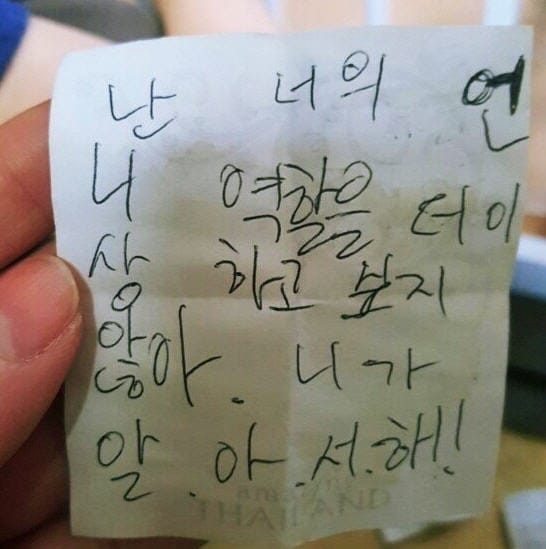 난 너의 언
니 역할을 더이
상 하고 싶지
않아. 니가
알.아.서.해!!
amazing
THAILAND